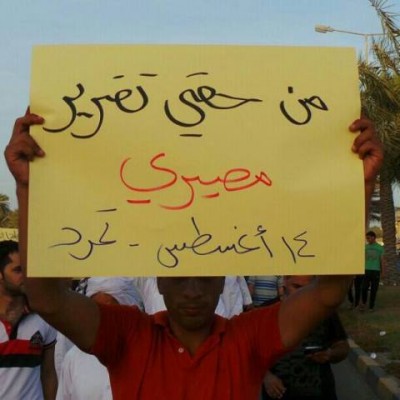 من حقي تقرير
مصيري
١٤ أغسطس - تمرد